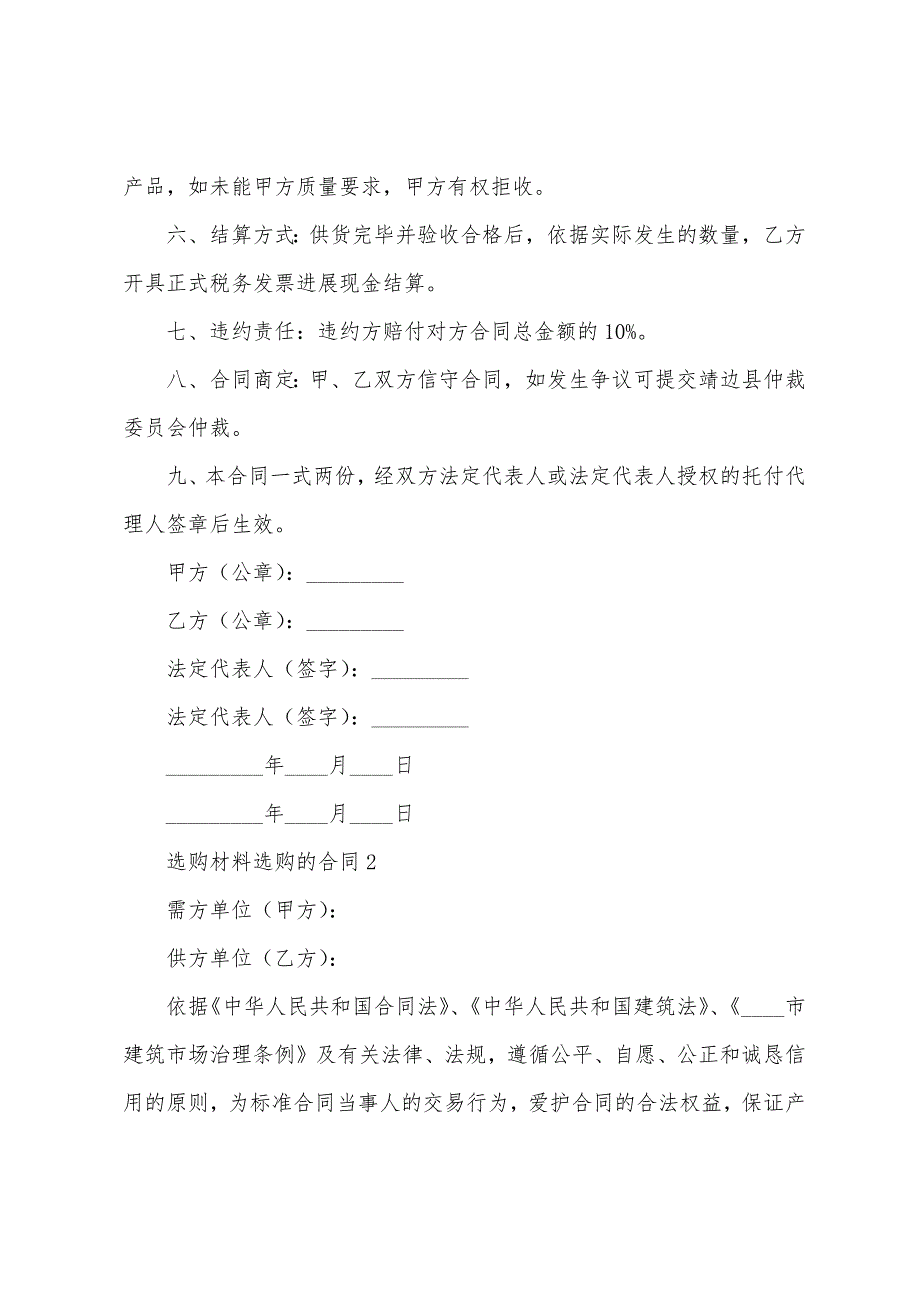 产品，如未能甲方质量要求，甲方有权拒收。
六、结算方式：供货完毕并验收合格后，依据实际发生的数量，乙方
开具正式税务发票进展现金结算。
七、违约责任：违约方赔付对方合同总金额的10%。
八、合同商定：甲、乙双方信守合同，如发生争议可提交靖边县仲裁
委员会仲裁。
九、本合同一式两份，经双方法定代表人或法定代表人授权的托付代
理人签章后生效。
甲方（公章）：_________
乙方（公章）：_________
法定代表人（签字）：_________
法定代表人（签字）：_________
_________年____月____日
_________年____月____日
选购材料选购的合同2
需方单位（甲方）：
供方单位（乙方）：
依据《中华人民共和国合同法》、《中华人民共和国建筑法》、《____市
建筑市场治理条例》及有关法律、法规，遵循公平、自愿、公正和诚恳信
用的原则，为标准合同当事人的交易行为，爱护合同的合法权益，保证产